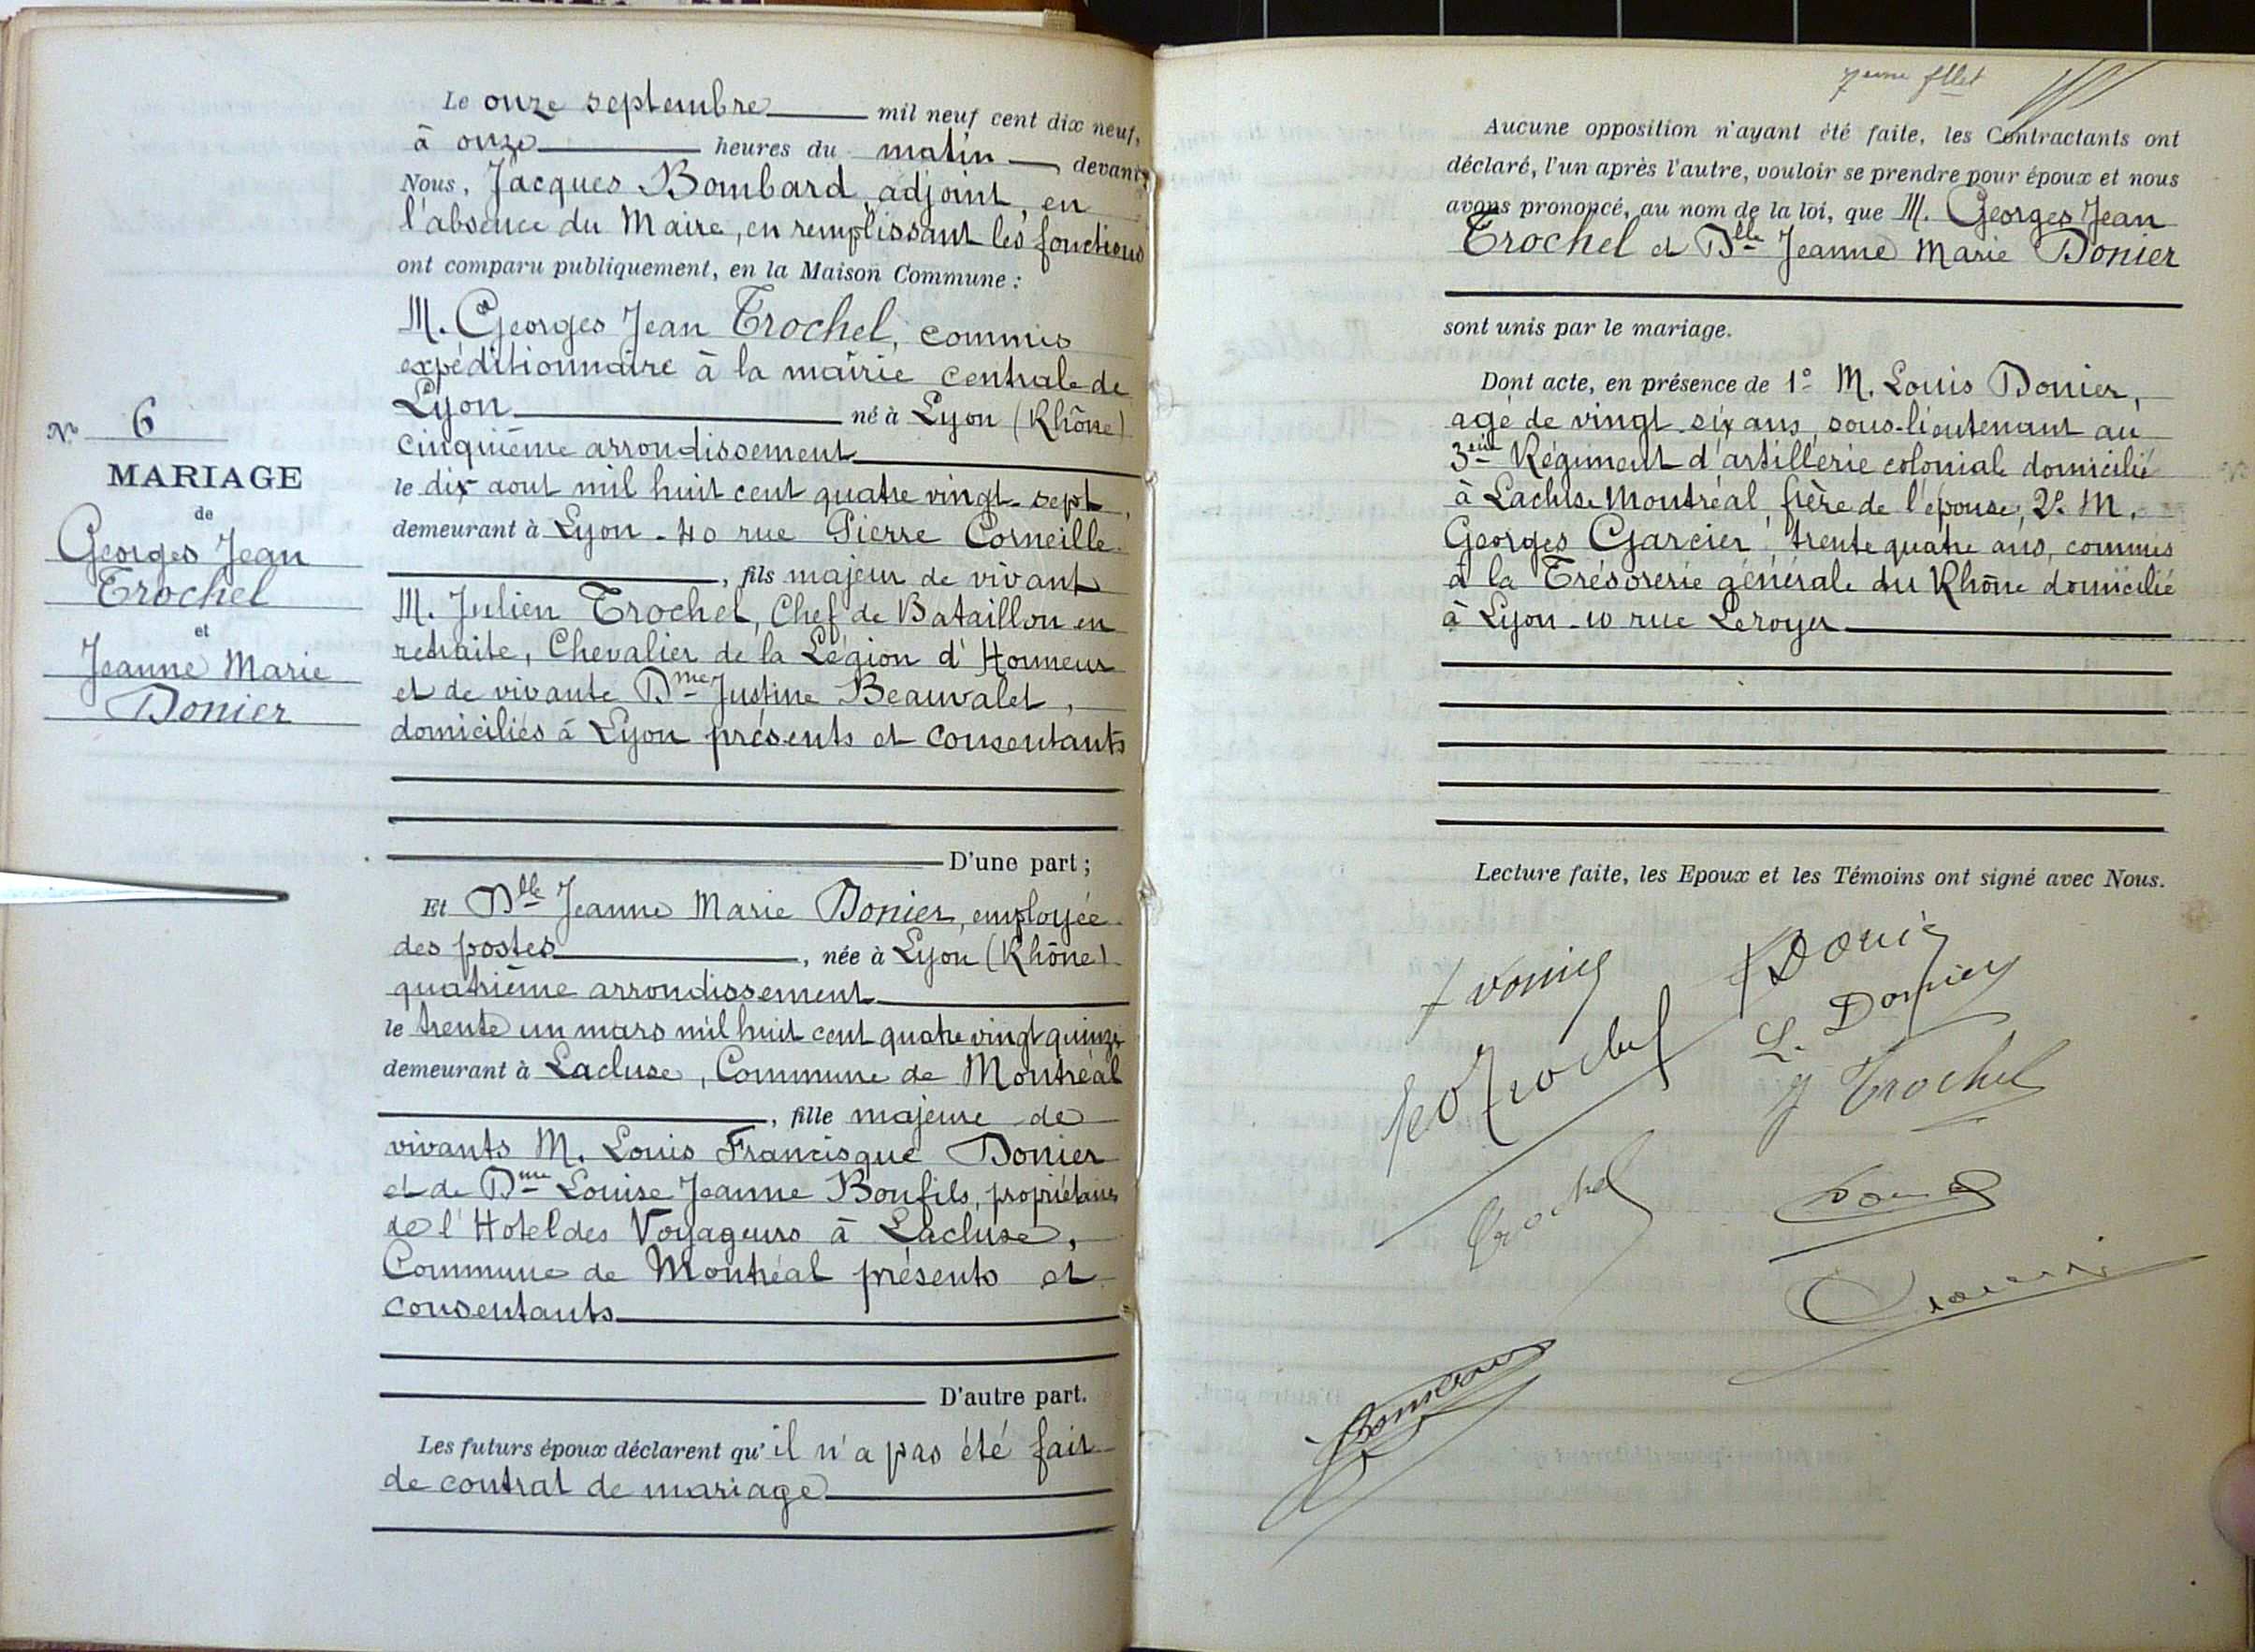 Le onze septembre mil neuf cent dix neuf,
à onze heures du matin devant
Nous, Jacques Bombard, adjoint, en
l'absence du Maire, en remplissant les fonctions
ont comparu publiquement, en la Maison Commune :
M. Georges Jean Trochel, commis
expéditionnaire à la mairie centrale de
Lyon né à Lyon (Rhône)
cinquième arrondissement
le dix aout mil huit cent quatre vingt-sept,
demeurant à Lyon - 40 rue Pierre Corneille
, fils majeur de vivant
M. Julien Trochel, Chef de Bataillon en
retraite, Chevalier de la Légion d'Honneur
et de vivante Dme Justine Beauvalet,
domiciliés à Lyon présents et consentants
D'une part ;
N° 6
MARIAGE
de
Georges Jean
Trochel
et
Jeanne Marie
Donier
Et Dlle Jeanne Marie Donier, employée
des postes, née à Lyon (Rhône)
quatrième arrondissement
le trente un mars mil huit cent quatre vingt quinze
demeurant à Lacluse, Commune de Montréal
, fille majeure de
vivants M. Louis Francisque Donier
et de Dme Louise Jeanne Bonfils, propriétaires
de l'Hotel des Voyageurs à Lacluse,
Commune de Montréal présents et
consentants
D'autre part.
Les futurs époux déclarent qu'il n'a pas été fait
de contrat de mariage
7eme fllet
Aucune opposition n'ayant été faite, les Contractants ont
déclaré, l'un après l'autre, vouloir se prendre pour époux et nous
avons prononcé, au nom de la loi, que M. Georges Jean
Trochel et Dlle Jeanne Marie Donier
sont unis par le mariage.
Dont acte, en présence de 1° M. Louis Donier,
agé de vingt-six ans, sous-lieutenant au
3eme Régiment d'artillerie colonial domicilié
à Lacluse Montréal, frère de l'épouse, 2° M.
Georges Garcier, trente quatre ans, commis
à la Trésorerie générale du Rhône domicilié
à Lyon - 10 rue Leroyer
Lecture faite, les Epoux et les Témoins ont signé avec Nous.
L. Donier
Trochel
Trochel